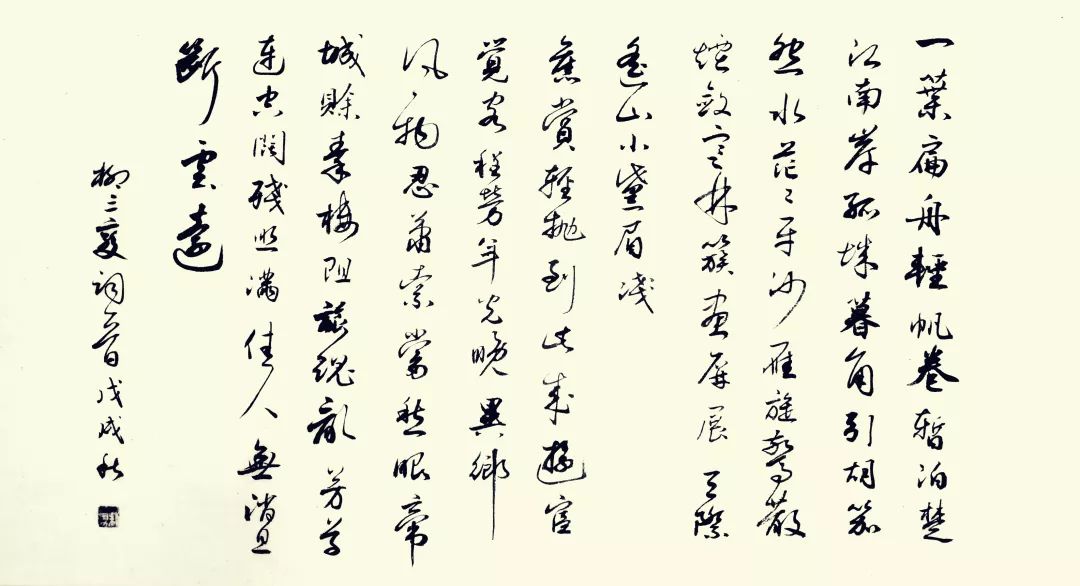 一葉扁舟輕帆卷暫泊楚
江南岸孤城暮角引胡笳
怨水茫〻平沙雁旋驚散
煙斂寒林簇畫屏展天際
遙山小黛眉淺
舊賞輕拋到此成遊宦
覺客程勞年光晚異鄉
風物忍蕭索當愁眼帝
城賒秦樓阻旅魂亂芳草
連空闊殘照滿佳人無消息
斷雲遠
柳三變詞一首戊戌秋